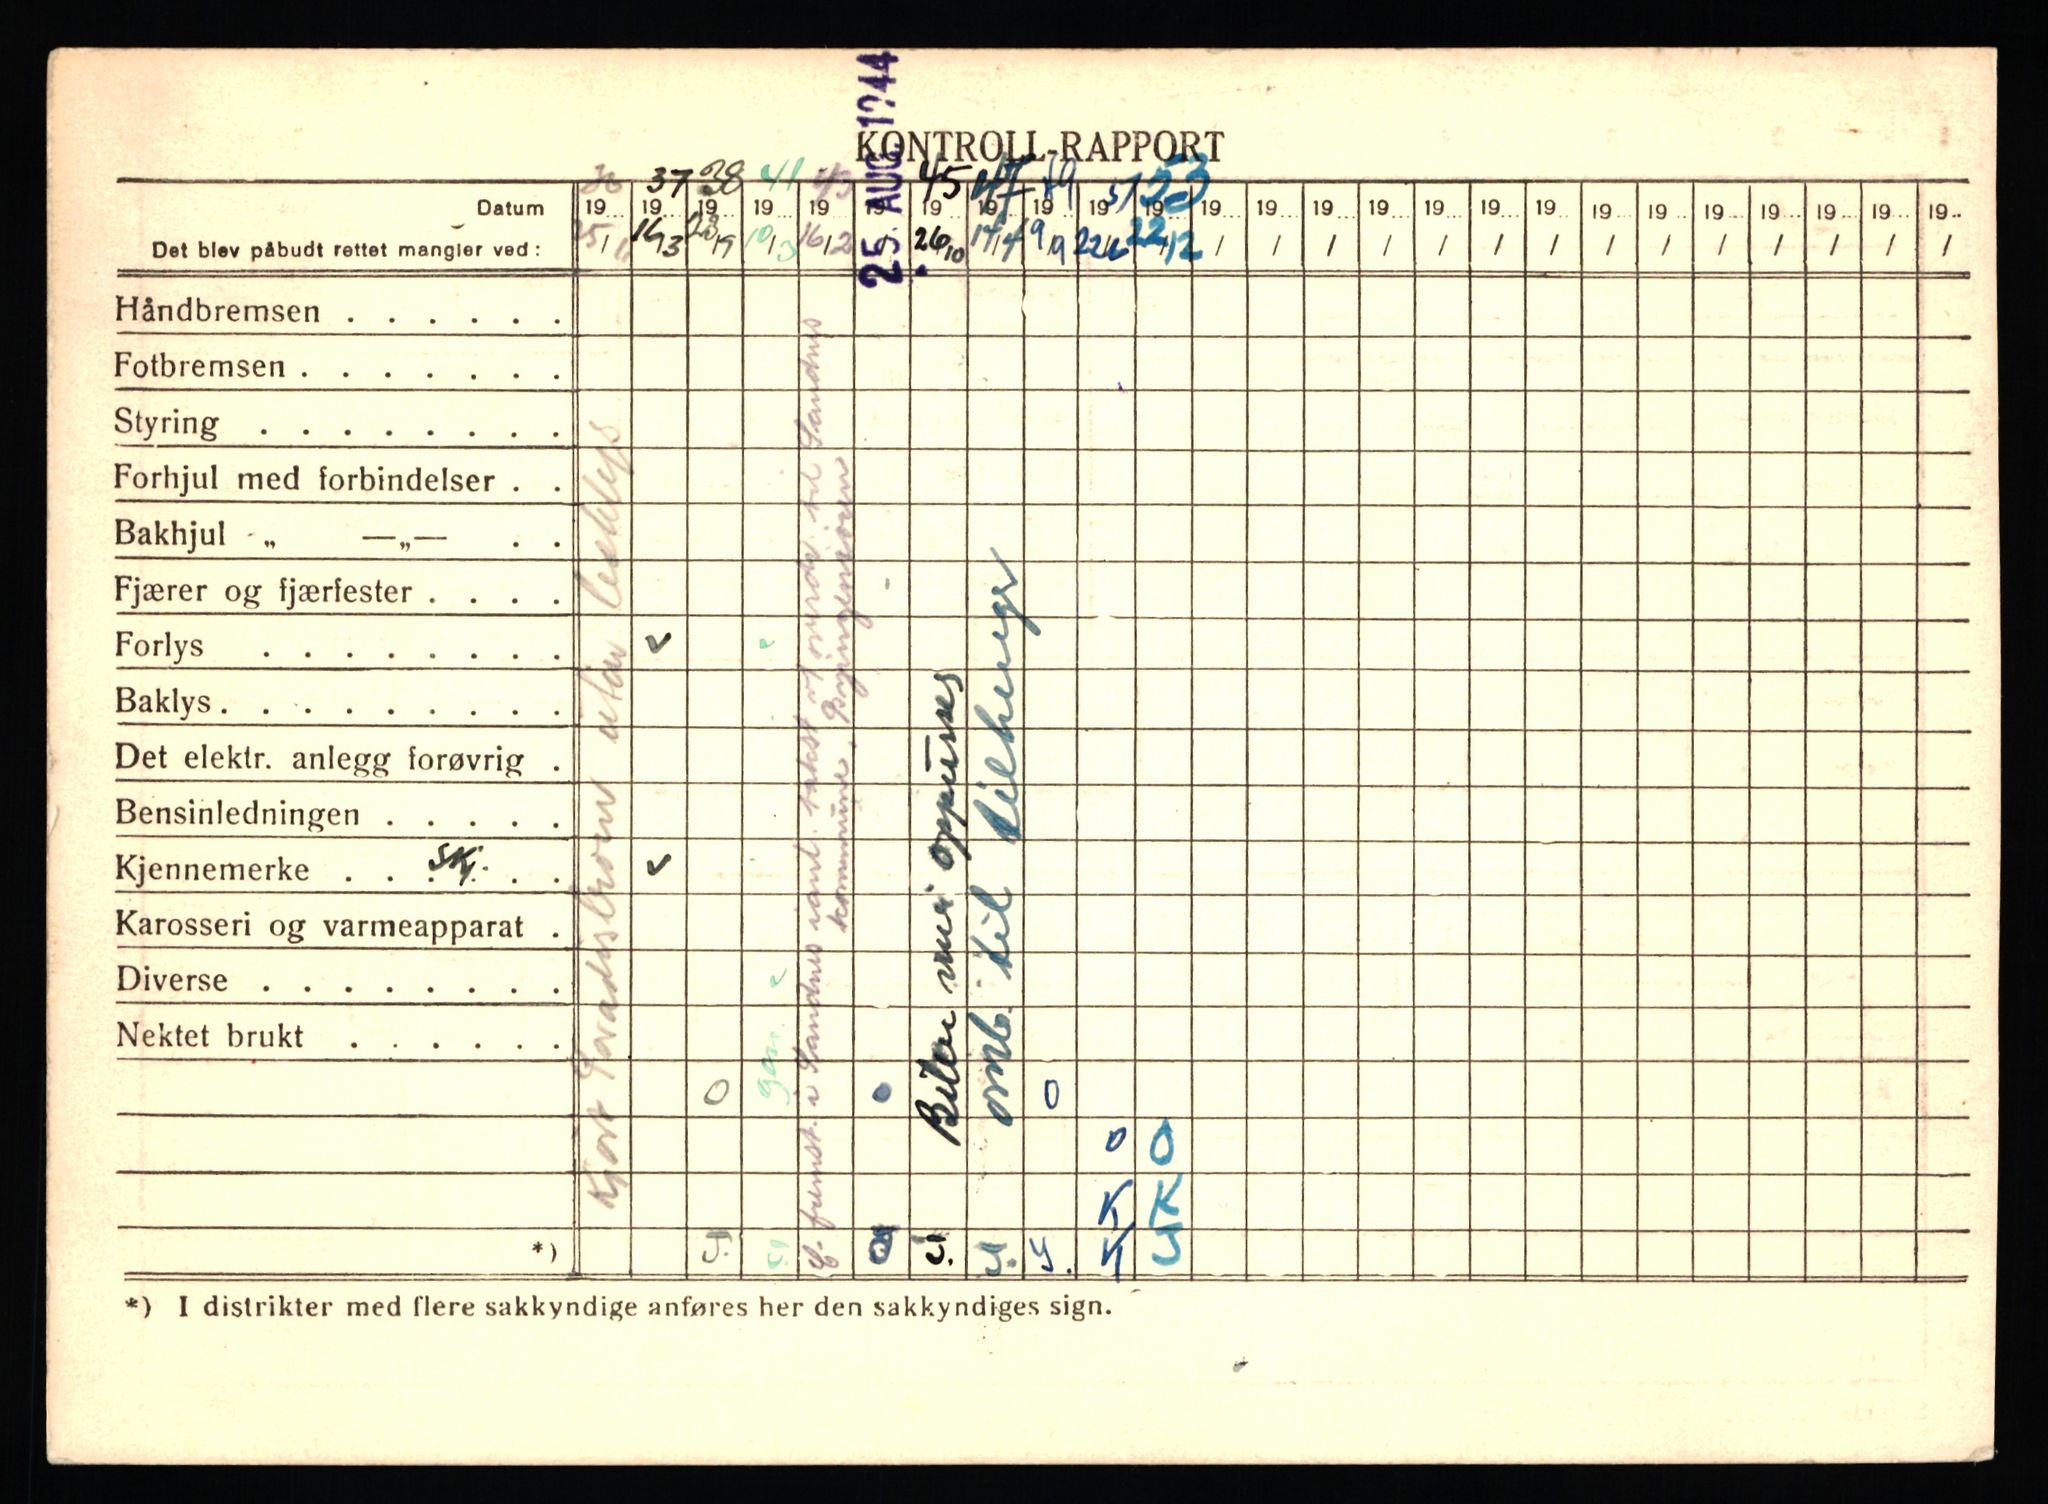 25. AUG. 1944
KONTROLL-RAPPORT
36 37 38 41 43 45 47 49 51 53
Datum 19... 19... 19... 19... 19... 19... 19... 19... 19... 19... 19... 19... 19... 19... 19... 19... 19... 19... 19... 19... 19... 19... 19... 19... 19...
Det blev påbudt rettet mangler ved: 25/11 16/3 23/9 10/3 16/2 / 26/10 14/4 9/9 22/6 22/12 / / / / / / / / / / / / / /
Håndbremsen
Fotbremsen
Styring
Forhjul med forbindelser
Bakhjul „ —„—
Fjærer og fjærfester
Forlys
Baklys
Det elektr. anlegg forøvrig
Bensinledningen
Kjennemerke
Karosseri og varmeapparat
Diverse
Nektet brukt
O gom. O
O O
K K
*)
utau
i Sandnes takst til Sandnes
kommune.
Bilen oppuses
omb. til tilhenger
*) I distrikter med flere sakkyndige anføres her den sakkyndiges sign.